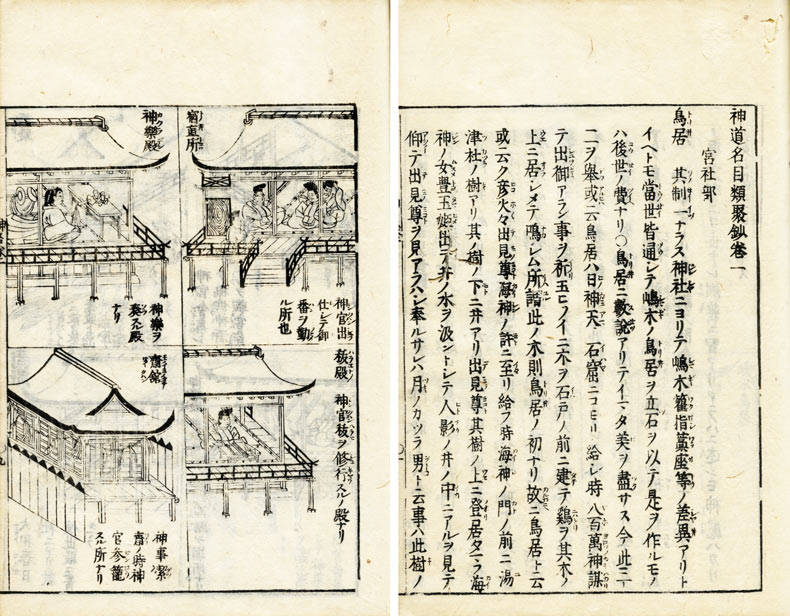 神道名目類聚鈔巻一
宮社部
鳥居 其制一ナラス神社ニヨリテ嶋木籠指藁座等ノ差異アリト
イヘトモ當世皆通シテ嶋木ノ鳥居ヲ立石ヲ以テ是ヲ作ルモノ
ハ後世ノ費ナリ〇鳥居ニ數說アリテイマタ美ヲ盡サス今此ニ一
二ヲ舉或云鳥居ハ日神天ノ石窟ニコモリ給シ時八百萬神謀
テ出御アラン事ヲ祈玉ヒノイニ木ヲ石戸ノ前ニ建テ鷄ヲ其木ノ
上ニ居シメテ鳴シム所謂此ノ木則鳥居ノ初ナリ故ニ鳥居ト云
或云ク彦火々出見尊海神ノ許ニ至リ給フ時海神ノ門ノ前ニ湯
津杜ノ樹アリ其ノ樹ノ下ニ井アリ出見尊其樹ノ上ニ登居タマフ海
神ノ女豊玉姫出テ井ノ水ヲ汲ントシテ人影ノ井ノ中ニアルヲ見テ
仰テ出見尊ヲ見アラハシ奉ルサレハ月ノカツラ男ト云事ハ此樹ノ
宿直所
神官出
仕シテ御
番ヲ勤
ル所也
神樂殿
神樂ヲ
奏スル殿
ナリ
祓殿 神官祓ヲ修行スルノ殿ナリ
齋館
神事潔
齋ノ時神
官参籠
スル所ナリ